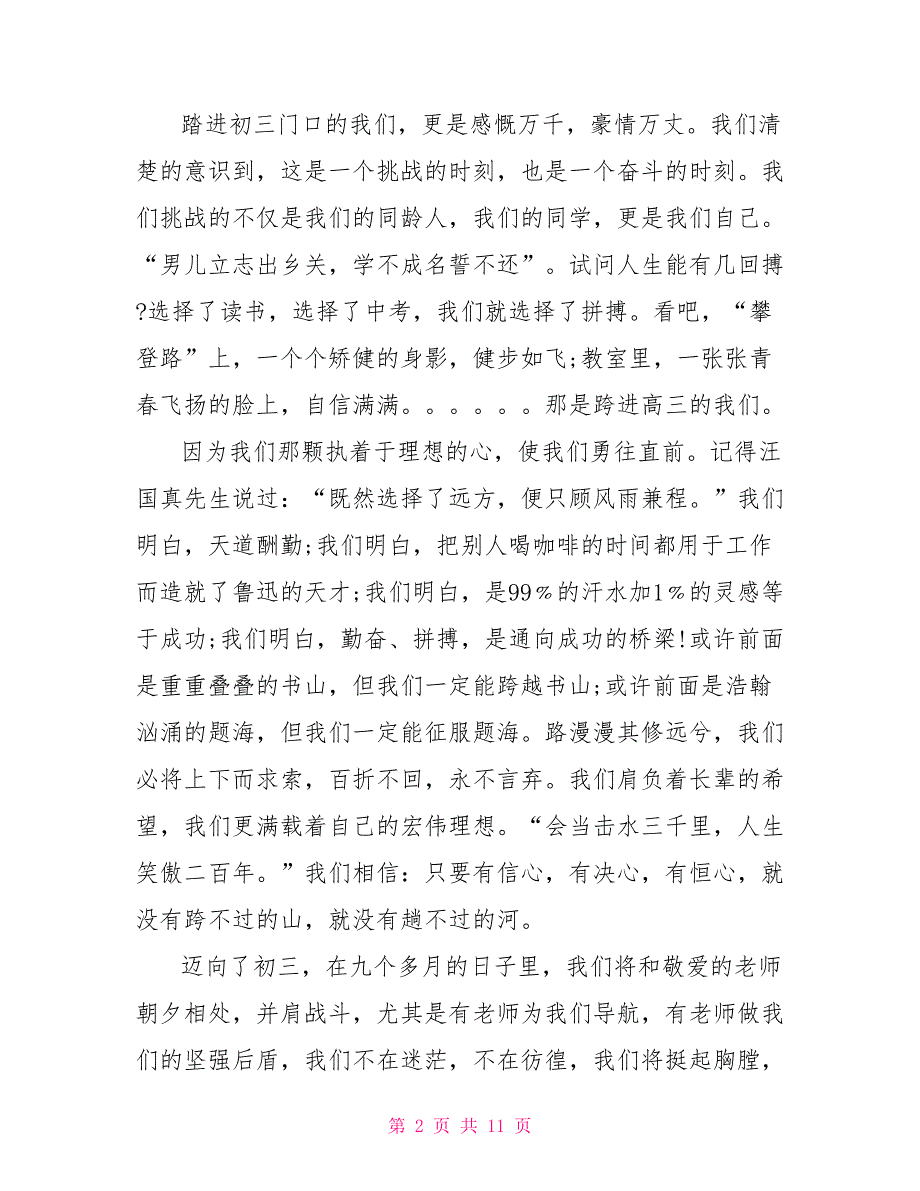 踏进初三门口的我们，更是感慨万千，豪情万丈。我们清
楚的意识到，这是一个挑战的时刻，也是一个奋斗的时刻。我
们挑战的不仅是我们的同龄人，我们的同学，更是我们自己。
“男儿立志出乡关，学不成名誓不还”。试问人生能有几回搏
?选择了读书，选择了中考，我们就选择了拼搏。看吧，“攀
登路”上，一个个矫健的身影，健步如飞;教室里，一张张青
春飞扬的脸上，自信满满。。。。。。那是跨进高三的我们。
因为我们那颗执着于理想的心，使我们勇往直前。记得汪
国真先生说过：“既然选择了远方，便只顾风雨兼程。”我们
明白，天道酬勤;我们明白，把别人喝咖啡的时间都用于工作
而造就了鲁迅的天才;我们明白，是99﹪的汗水加1﹪的灵感等
于成功;我们明白，勤奋、拼搏，是通向成功的桥梁!或许前面
是重重叠叠的书山，但我们一定能跨越书山;或许前面是浩瀚
汹涌的题海，但我们一定能征服题海。路漫漫其修远兮，我们
必将上下而求索，百折不回，永不言弃。我们肩负着长辈的希
望，我们更满载着自己的宏伟理想。“会当击水三千里，人生
笑傲二百年。”我们相信：只要有信心，有决心，有恒心，就
没有跨不过的山，就没有趟不过的河。
迈向了初三，在九个多月的日子里，我们将和敬爱的老师
朝夕相处，并肩战斗，尤其是有老师为我们导航，有老师做我
们的坚强后盾，我们不在迷茫，不在彷徨，我们将挺起胸膛，
第 2 页 共 11 页